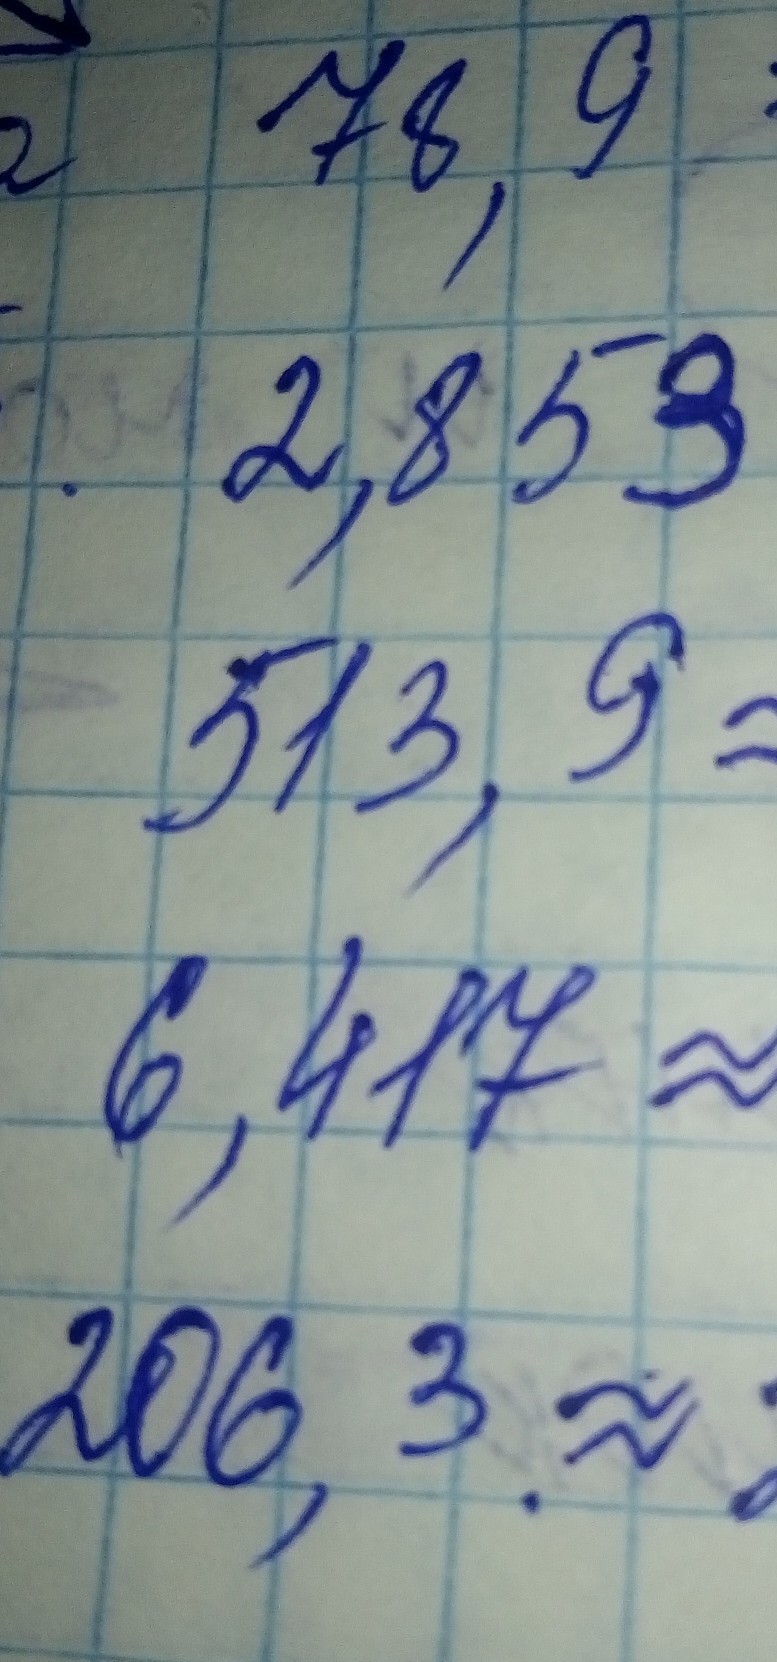 78,9
2,853
513,9 ≈
6,417 ≈
206,3 ≈